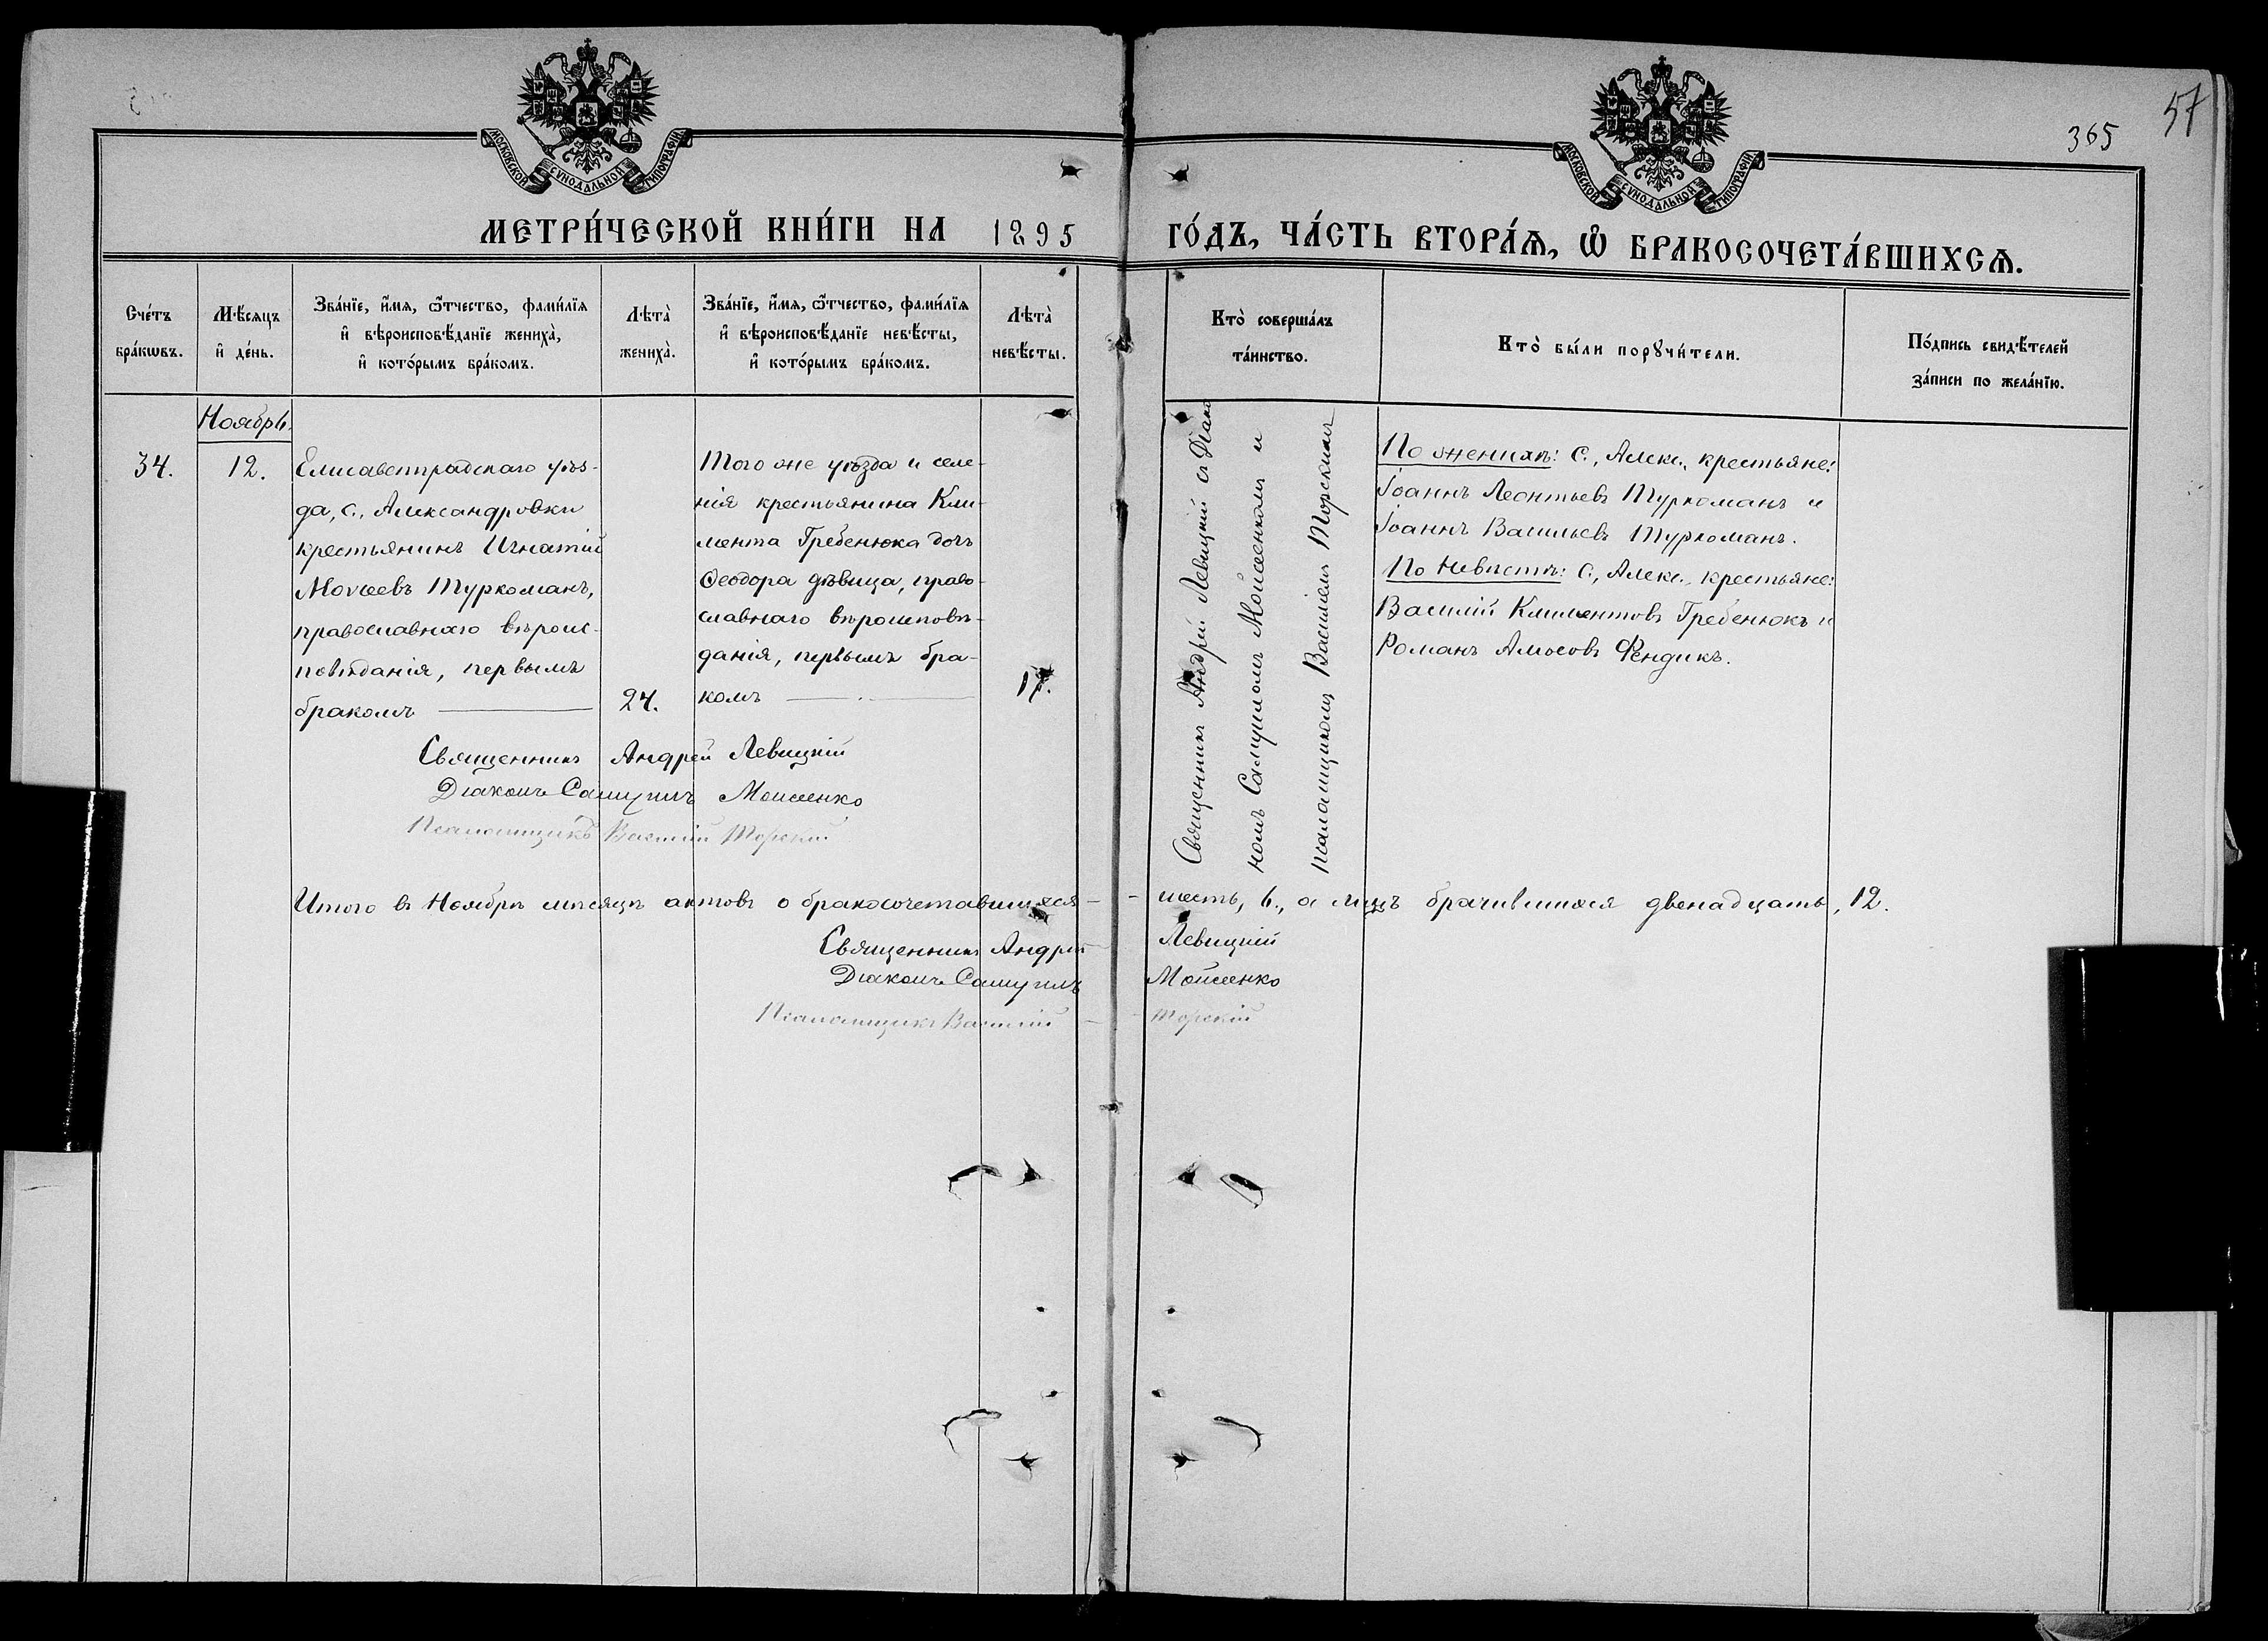 365
57
МОСКОВСКОЙ СѴНОДАЛЬНОЙ ТИПОГРАФІИ
МОСКОВСКОЙ СѴНОДАЛЬНОЙ ТИПОГРАФІИ
МЕТРИ́ЧЕСКОЙ КНИ́ГИ НА 1895
ГО́ДЪ, ЧА́СТЬ ВТОРА́Ѧ, Ѽ БРАКОСОЧЕТА́ВШИХСѦ.
Сче́тъ
бра́кѡвъ.
Мѣ́сяцъ
и҆ де́нь.
Зва́нїе, и҆́мя, ѻ҆́тчество, фами́лїя
и҆ вѣроисповѣ́данїе жениха̀,
и҆ кото́рымъ бра́комъ.
Лѣта̀
жениха̀.
Зва́нїе, и҆́мя, ѻ҆́тчество, фами́лїя
и҆ вѣроисповѣ́данїе невѣ́сты,
и҆ кото́рымъ бра́комъ.
Лѣта̀
невѣ́сты.
Кто̀ соверша́лъ
та́инство.
Кто̀ бы́ли порꙋчи́тели.
По́дпись свидѣ́телей
за́писи по жела́нїю.
Ноябрь.
34.
12.
Елисаветградскаго уѣз-
да, с., Александровки
крестьянинъ Игнатій
Моѵсеевъ Туркоманъ,
православнаго вѣроис-
повѣданія, первымъ
бракомъ
24.
Того же уѣзда и селе-
нія крестьянина Кли-
мента Гребенюка дочь
Ѳеодора дѣвица, право-
славнаго вѣроисповѣ-
данія, первымъ бра-
комъ
17.
Священникъ Андрей Левицкій съ Діако
номъ Самуиломъ Мойсеенкомъ и
псаломщикомъ Василіемъ Торскимъ
По женихѣ: с., Алекс., крестьяне:
Іоаннъ Леонтьевъ Туркоманъ и
Іоаннъ Васильевъ Туркоманъ.
По невѣстѣ: с., Алекс., крестьяне:
Василій Климентовъ Гребенюкъ и
Романъ Амосовъ Фендикъ.
Священникъ Андрей Левицкій
Діаконъ Самуилъ Моисеенко
Псаломщикъ Василій Торскій
Итого въ Ноябрѣ мѣсяцѣ актовъ о бракосочетавшихся - - шесть, 6., а лицъ брачившихся двенадцать, 12.
Священникъ Андрей - Левицкій
Діаконъ Самуилъ - Мойсеенко
Псаломщикъ Василій - - Торскій